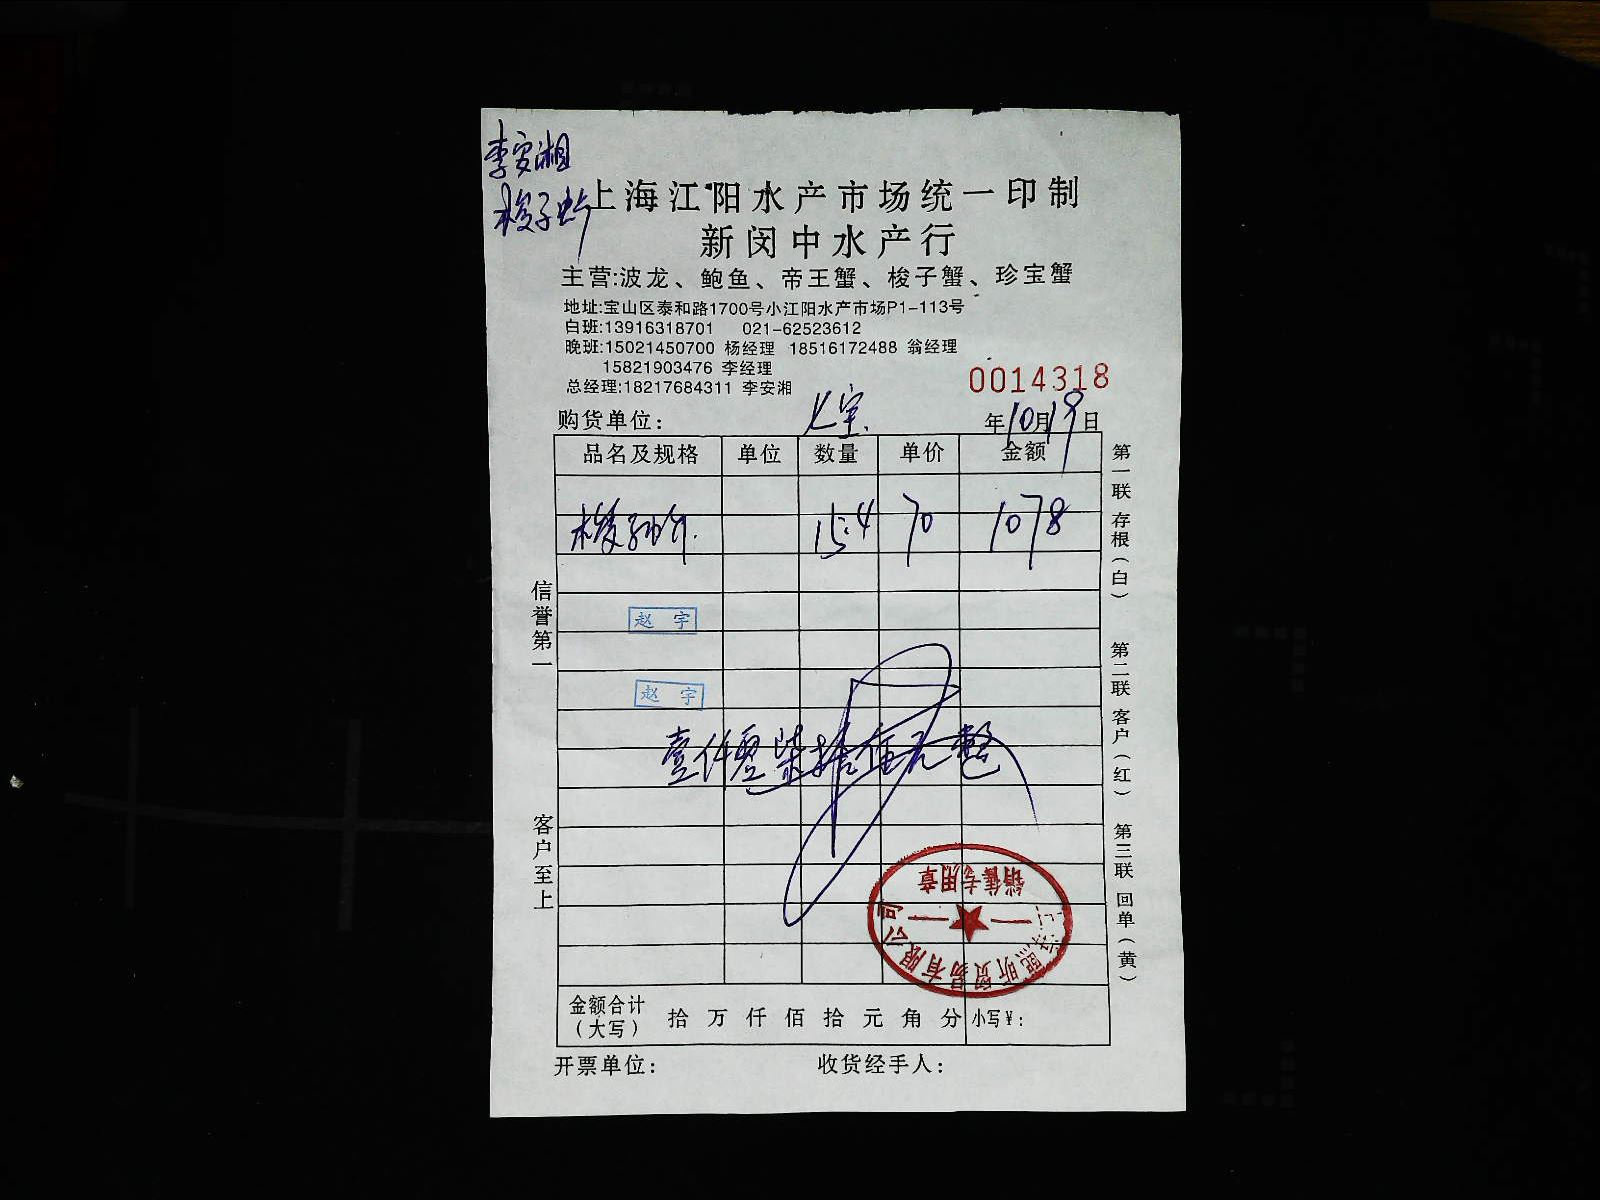 李安湘
梭子蚧
上海江阳水产市场统一印制
新闵中水产行
主营:波龙、鲍鱼、帝王蟹、梭子蟹、珍宝蟹
地址:宝山区泰和路1700号小江阳水产市场P1-113号
白班:13916318701 021-62523612
晚班:15021450700 杨经理 18516172488 翁经理
15821903476 李经理
总经理:18217684311 李安湘
0014318
购货单位: 七宝 年10月19日
品名及规格 单位 数量 单价 金额
梭子 15.4 70 1078
赵宇
赵宇
壹仟零柒拾 元整
信誉第一
客户至上
第一联存根(白)
第二联客户(红)
第三联回单(黄)
销售专用章
昕贸易有限公司
金额合计(大写) 拾万仟佰拾元角分 小写¥:
开票单位: 收货经手人: